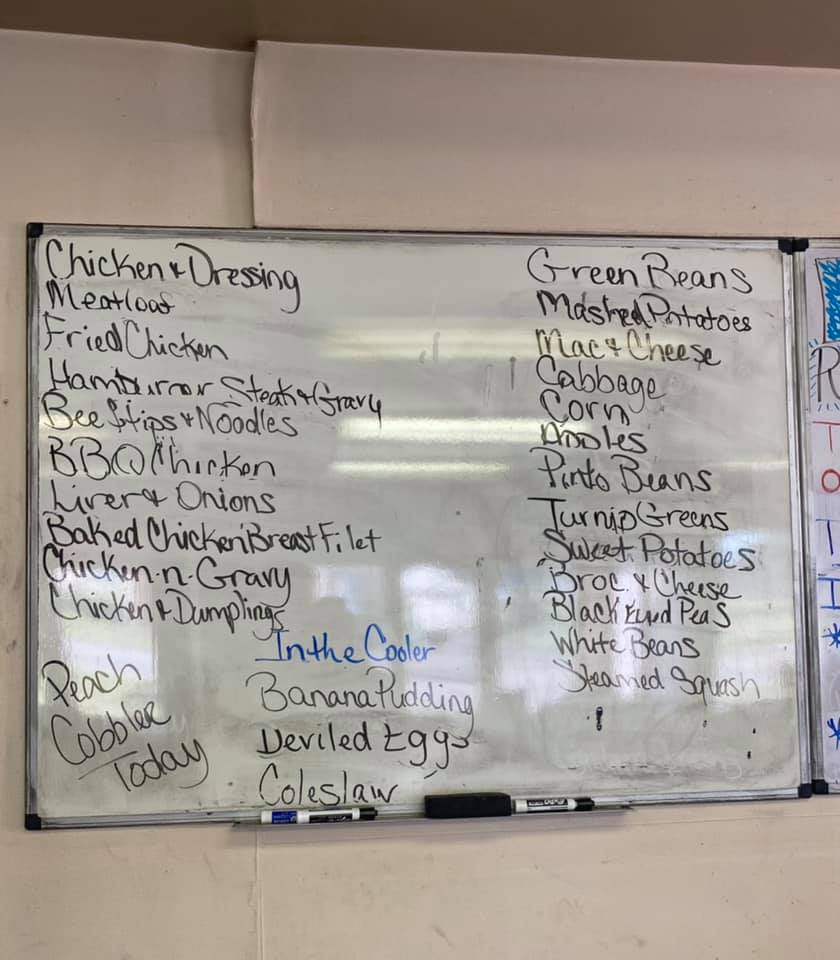 Chicken & Dressing
Meatloaf
Fried Chicken
Hamburger Steak & Gravy
Beef Tips & Noodles
BBQ Chicken
Liver & Onions
Baked Chicken Breast Filet
Chicken-n-Gravy
Chicken & Dumplings
Peach
Cobbler
Today
In the Cooler
Banana Pudding
Deviled Eggs
Coleslaw
Green Beans
Mashed Potatoes
Mac & Cheese
Cabbage
Corn
Apples
Pinto Beans
Turnip Greens
Sweet Potatoes
Broc. & Cheese
Black Eyed Peas
White Beans
Steamed Squash
R
T
O